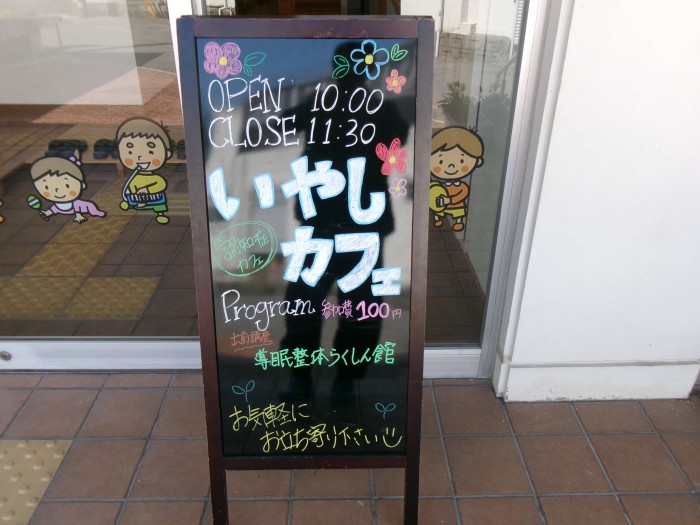 OPEN 10:00
CLOSE 11:30
いやし
認知症
カフェ
カフェ
Program 参加費 100円
出前講座
導眠整体らくしん館
お気軽に
お立ち寄り下さい